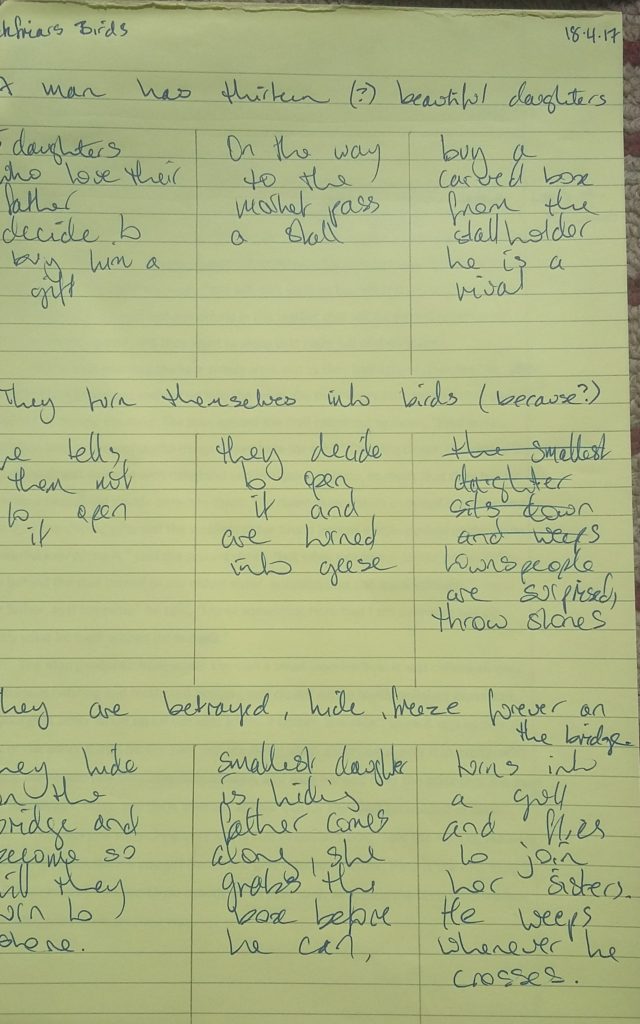 ckfriars Birds
18.4.17
A man has thirteen (?) beautiful daughters
daughters
who love their
father
decide to
buy him a
gift
On the way
to the
market pass
a stall
buy a
carved box
from the
stallholder
he is a
rival
They turn themselves into birds (because?)
he tells
them not
to open
it
they decide
to open
it and
are turned
into geese
the smallest
daughter
sits down
and weeps
townspeople
are surprised,
throw stones
hey are betrayed, hide, freeze forever on
the bridge.
hey hide
on the
bridge and
ecome so
ill they
urn to
stone.
smallest daughter
is hiding
father comes
along, she
grabs the
box before
he can,
turns into
a gull
and flies
to join
her sisters.
He weeps
whenever he
crosses.